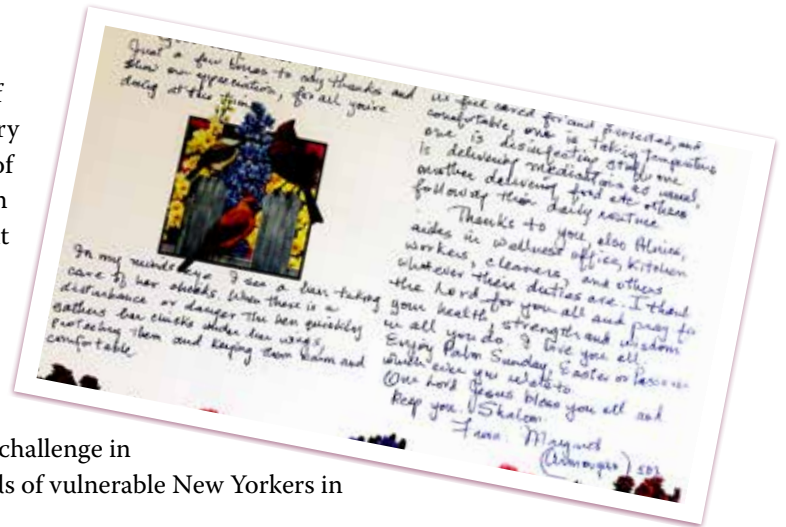 f
ry
of
n
t
challenge in
ds of vulnerable New Yorkers in
Just a few lines to say thanks and
show our appreciation, for all you're
doing at this time
In my minds eye I see a hen taking
care of her chicks. When there is a
disturbance or danger the hen quickly
gathers her chicks under her wings,
protecting them and keeping them warm and
comfortable
we feel cared for and protected, and
comfortable, one is taking temperature
one is disinfecting one
is delivering medications as usual,
another delivering food etc others
following their daily routine
Thanks to you, also
aides in wellness office, Kitchen
workers, cleaners, and others
whatever their duties are. I thank
the Lord for you all and pray for
your health, strength and wisdom
in all you do. I love you all.
Enjoy Palm Sunday, Easter or
which ever you relate to.
Our Lord Jesus bless you all and
Keep you. Shalom.
From: Margaret